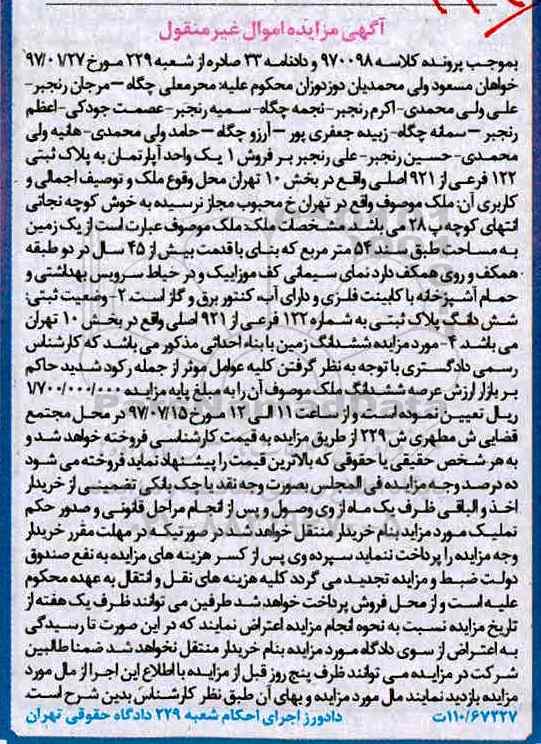 آگهی مزایده اموال غیر منقول
بموجب پرونده کلاسه ۹۷۰۰۹۸ و دادنامه ۳۳ صادره از شعبه ۲۲۹ مورخ ۹۷/۰۱/۲۷
خواهان مسعود ولی محمدیان دوزدوزان محکوم علیه: محرمعلی چگاه – مرجان رنجبر-
علی ولی محمدی- اکرم رنجبر- نجمه چگاه- سمیه رنجبر- عصمت جودکی- اعظم
رنجبر – سمانه چگاه- زبیده جعفری پور – آرزو چگاه – حامد ولی محمدی- هانیه ولی
محمدی- حسین رنجبر- علی رنجبر بر فروش ۱ یک واحد آپارتمان به پلاک ثبتی
۱۲۲ فرعی از ۹۲۱ اصلی واقع در بخش ۱۰ تهران محل وقوع ملک و توصیف اجمالی و
کاربری آن: ملک موصوف واقع در تهران خ محبوب مجاز نرسیده به خوش کوچه نجاتی
انتهای کوچه پ ۲۸ می باشد. مشخصات ملک: ملک موصوف عبارت است از یک زمین
به مساحت طبق سند ۵۴ متر مربع که بنای با قدمت بیش از ۴۵ سال در دو طبقه
همکف و روی همکف دارد نمای سیمانی کف موزاییک و در حیاط سرویس بهداشتی و
حمام آشپزخانه با کابینت فلزی و دارای آب، کنتور برق و گاز است. ۲- وضعیت ثبتی:
شش دانگ پلاک ثبتی به شماره ۱۲۲ فرعی از ۹۲۱ اصلی واقع در بخش ۱۰ تهران
می باشد ۴- مورد مزایده ششدانگ زمین با بناء احداثی مذکور می باشد که کارشناس
رسمی دادگستری با توجه به نظر گرفتن کلیه عوامل موثر از جمله رکود شدید حاکم
بر بازار ارزش عرصه ششدانگ ملک موصوف آن را به مبلغ پایه مزایده ۱/۷۰۰/۰۰۰/۰۰۰
ریال تعیین نموده است. و از ساعت ۱۱ الی ۱۲ مورخ ۹۷/۰۷/۱۵ در محل مجتمع
قضایی ش مطهری ش ۲۲۹ از طریق مزایده به قیمت کارشناسی فروخته خواهد شد و
به هر شخص حقیقی یا حقوقی که بالاترین قیمت را پیشنهاد نماید فروخته می شود
ده درصد وجه مزایده فی المجلس بصورت وجه نقد یا چک بانکی تضمینی از خریدار
اخذ و الباقی ظرف یک ماه از وی وصول و پس از انجام مراحل قانونی و صدور حکم
تملیک مورد مزاید بنام خریدار منتقل خواهد شد در صورتیکه در مهلت مقرر خریدار
وجه مزایده را پرداخت ننماید سپرده وی پس از کسر هزینه های مزایده به نفع صندوق
دولت ضبط و مزایده تجدید می گردد کلیه هزینه های نقل و انتقال به عهده محکوم
علیه است و از محل فروش پرداخت خواهد شد طرفین می توانند ظرف یک هفته از
تاریخ مزایده نسبت به نحوه انجام مزایده اعتراض نمایند که در این صورت تا رسیدگی
به اعتراض از سوی دادگاه مورد مزایده بنام خریدار منتقل نخواهد شد ضمنا طالبین
شرکت در مزایده می توانند ظرف پنج روز قبل از مزایده با اطلاع این اجرا از مال مورد
مزایده بازدید نمایند مال مورد مزایده و بهای آن طبق نظر کارشناس بدین شرح است.
۱۱۰/۶۷۲۲۷ت دادورز اجرای احکام شعبه ۲۲۹ دادگاه حقوقی تهران